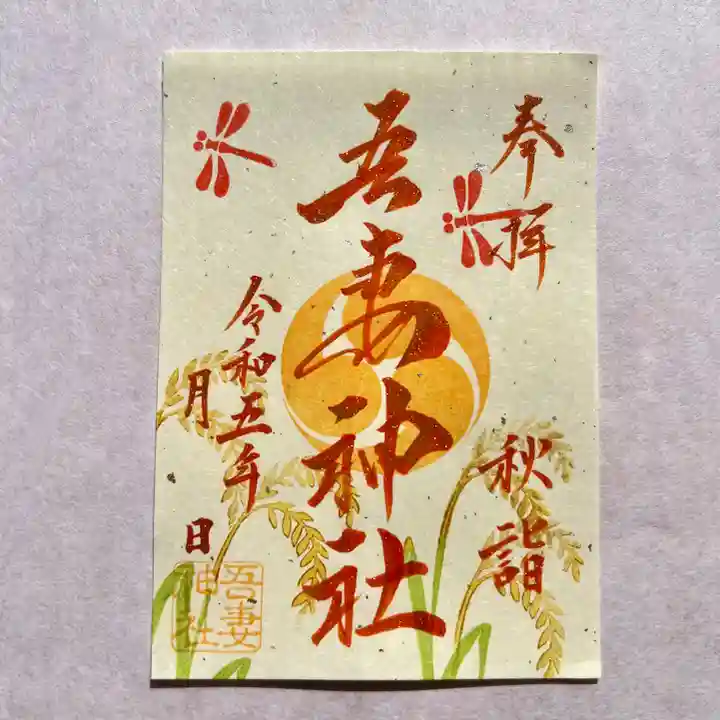 奉拝
秋詣
吾妻神社
令和五年
月 日
吾妻
神社